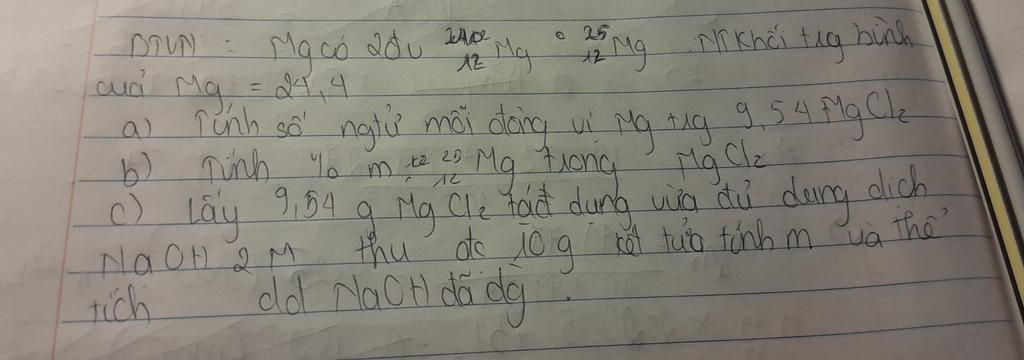 BTVN : Mg có 2đv 24 12 Mg 25 12 Mg . NTKhối tug bình
quả Mg = 24,4
a) Tính số ngtử mỗi đồng vị Mg tug 9,54 MgCl2
b) Tính % m 25 12 Mg trong MgCl2
c) Lấy 9,54 g MgCl2 tác dụng vừa đủ dung dịch
NaOH 2M thu đc 10g kết tủa tính m và thể
tích dd NaOH đã dg .